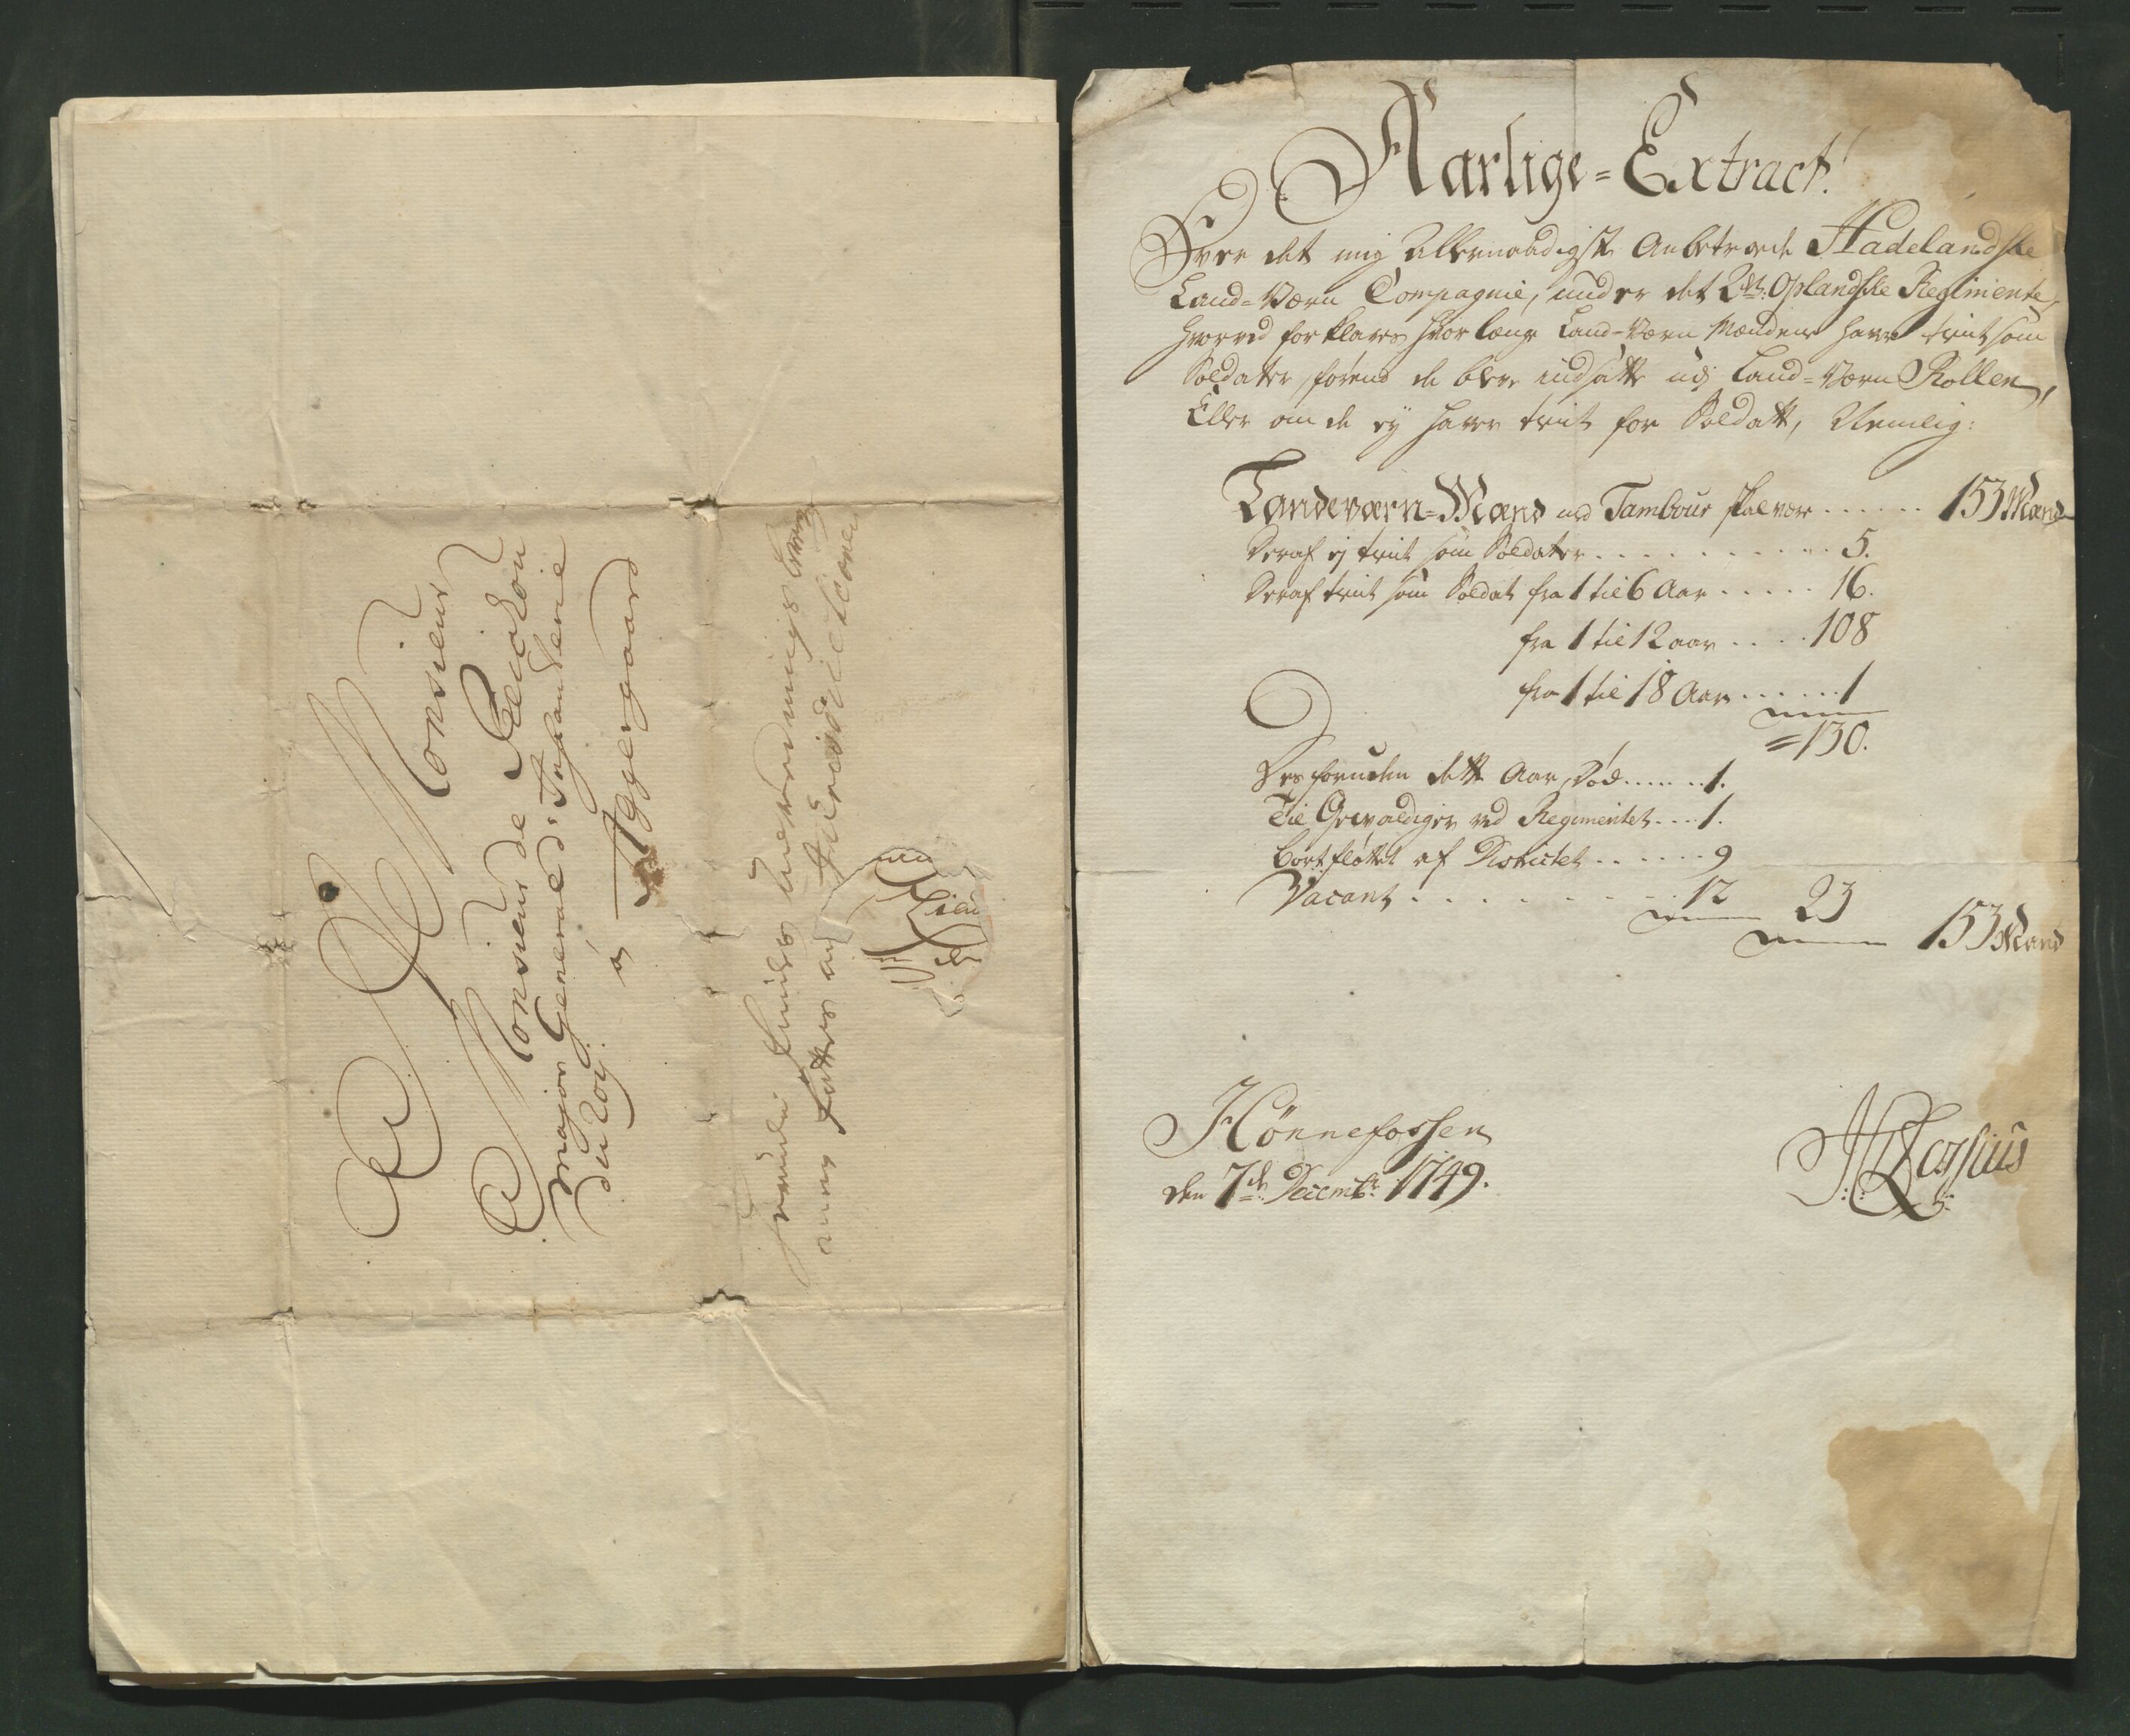 A Monsieur
Monsieur de
Major General d'Infanterie
du Roy.
à Aggergaard
Aarlige=Extract!
Over det mig Allernaadigst Anbetroede Hadelandske
Land=Værn Compagnie, under det 2det Oplandske Regimente,
hvorved forklares hvor længe Land=Værn Mændene haver tient som
Soldater, førend de bleve indsatte udj Land=Værn Rollen,
Eller om de ej haver tient for Soldatt, Nemlig:
Landeværn=Mænd med Tambour skal være ...... 153 Mand
Deraf ej tient som Soldater .......... 5.
Deraf tient som Soldat fra 1 til 6 Aar ..... 16.
fra 1 til 12 aar .... 108
fra 1 til 18 Aar ...... 1
=130.
Desforuden dette Aar Død ...... 1.
Til Gevaldiger ved Regimentet ... 1.
bortfløttet af Districtet ...... 9
Vacant ......... 12 23 153 Mand
Hønnefossen
den 7de Decembr: 1749.